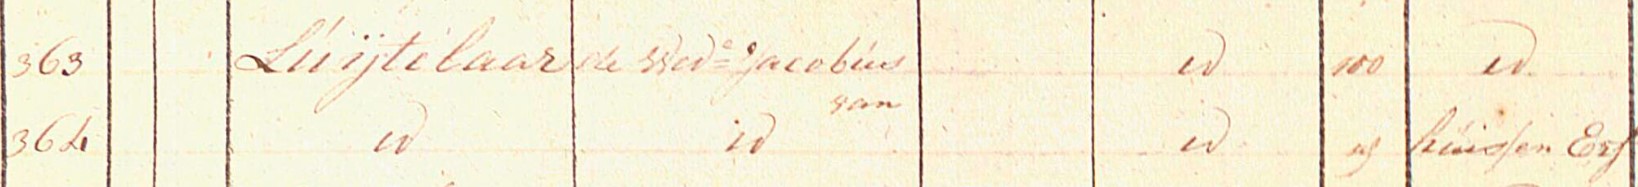 363 Luijtelaar de Wed.e Jacobus id 100 id
van
364 id id id id huis en Erf